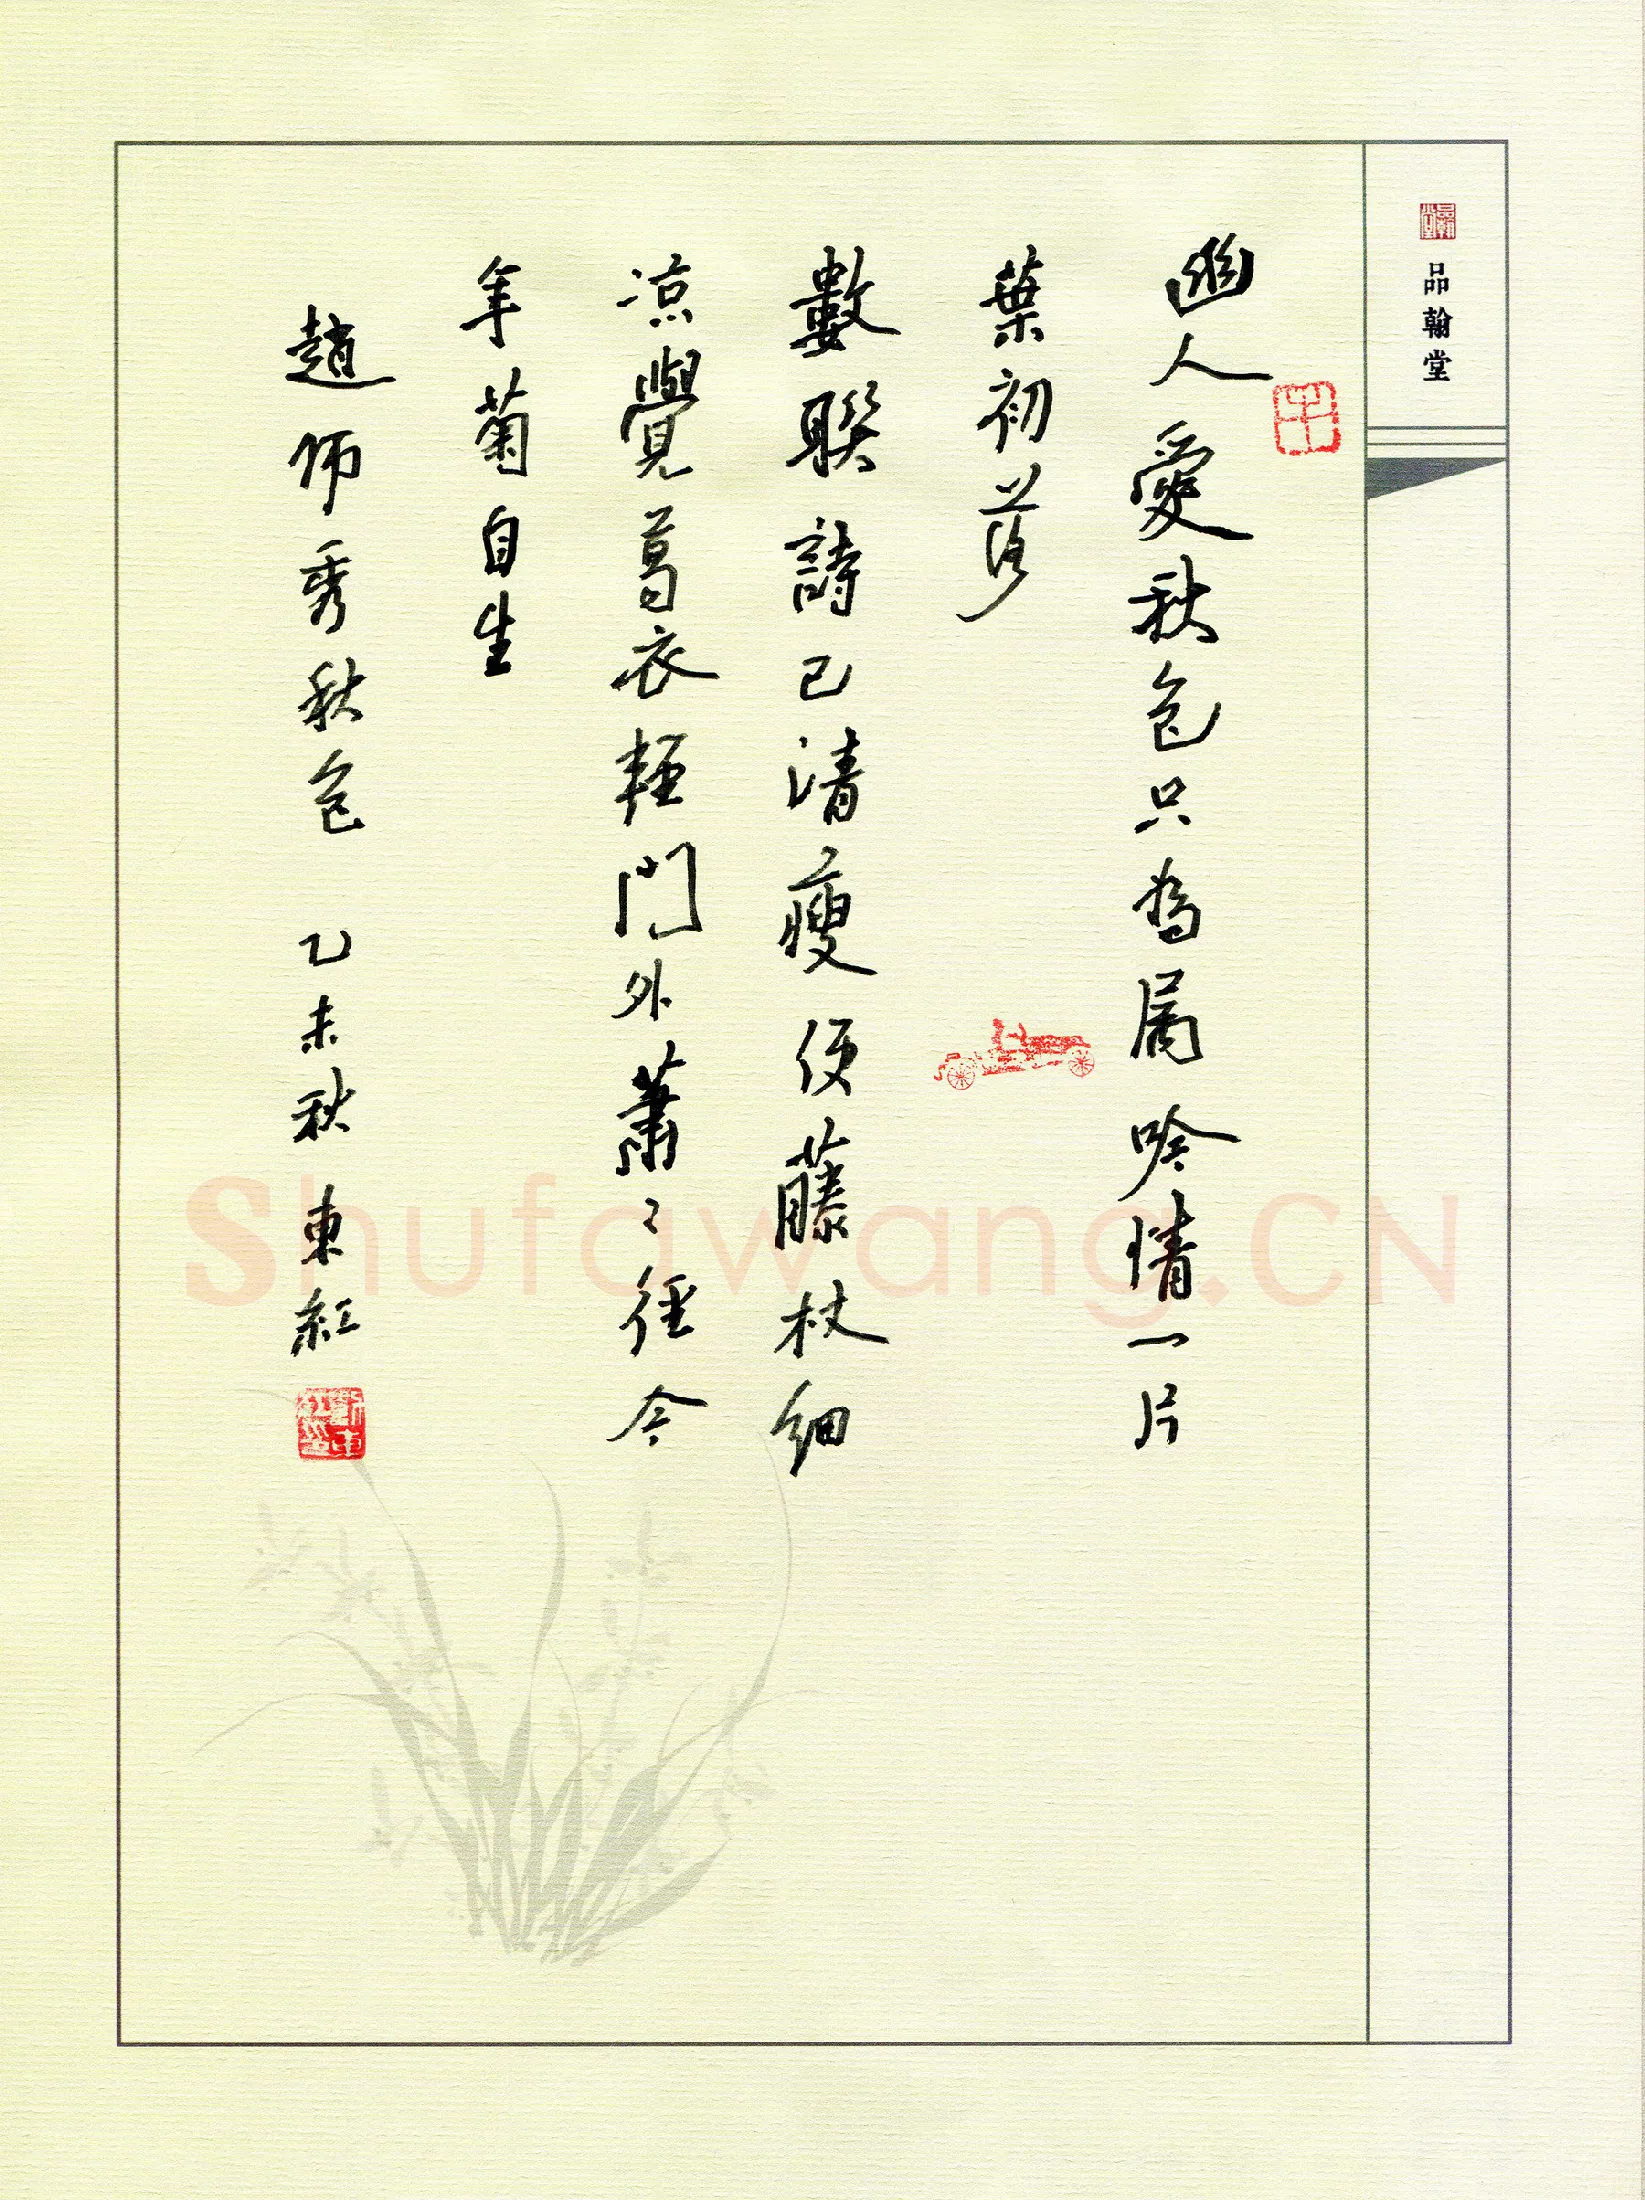 品翰堂
幽人愛秋色只為屬吟情一片
葉初落
數聯詩已清瘦便藤杖細
涼覺葛衣輕門外蕭〻徑今
年菊自生
趙師秀秋色 乙未秋東紅
Shufawang.CN